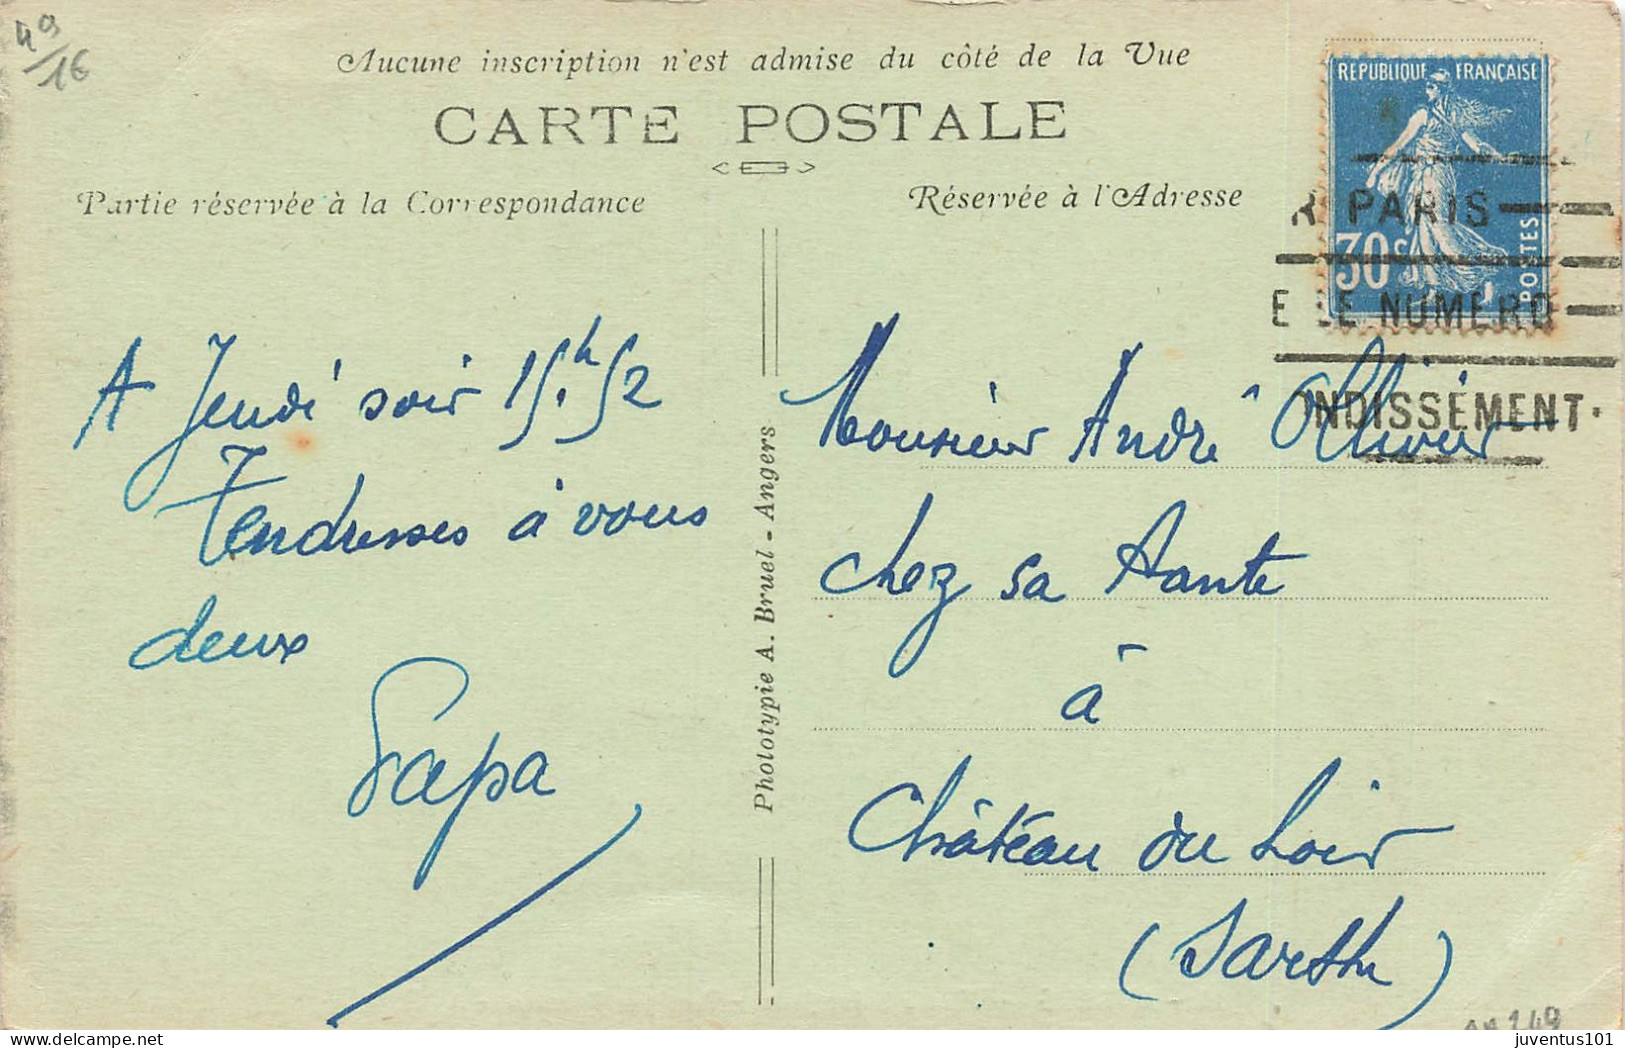 49/16
Aucune inscription n'est admise du côté de la Vue
CARTE POSTALE
Partie réservée à la Correspondance
Réservée à l'Adresse
REPUBLIQUE FRANÇAISE
30c
POSTES
R PARIS
E LE NUMERO
ONDISSEMENT.
A Jeudi soir 15h52
Tendresses à vous
deux
Papa
Phototypie A. Bruel - Angers
Monsieur André Ollivier
chez sa Tante
à
Château du Loir
(Sarthe)
149
juventus101